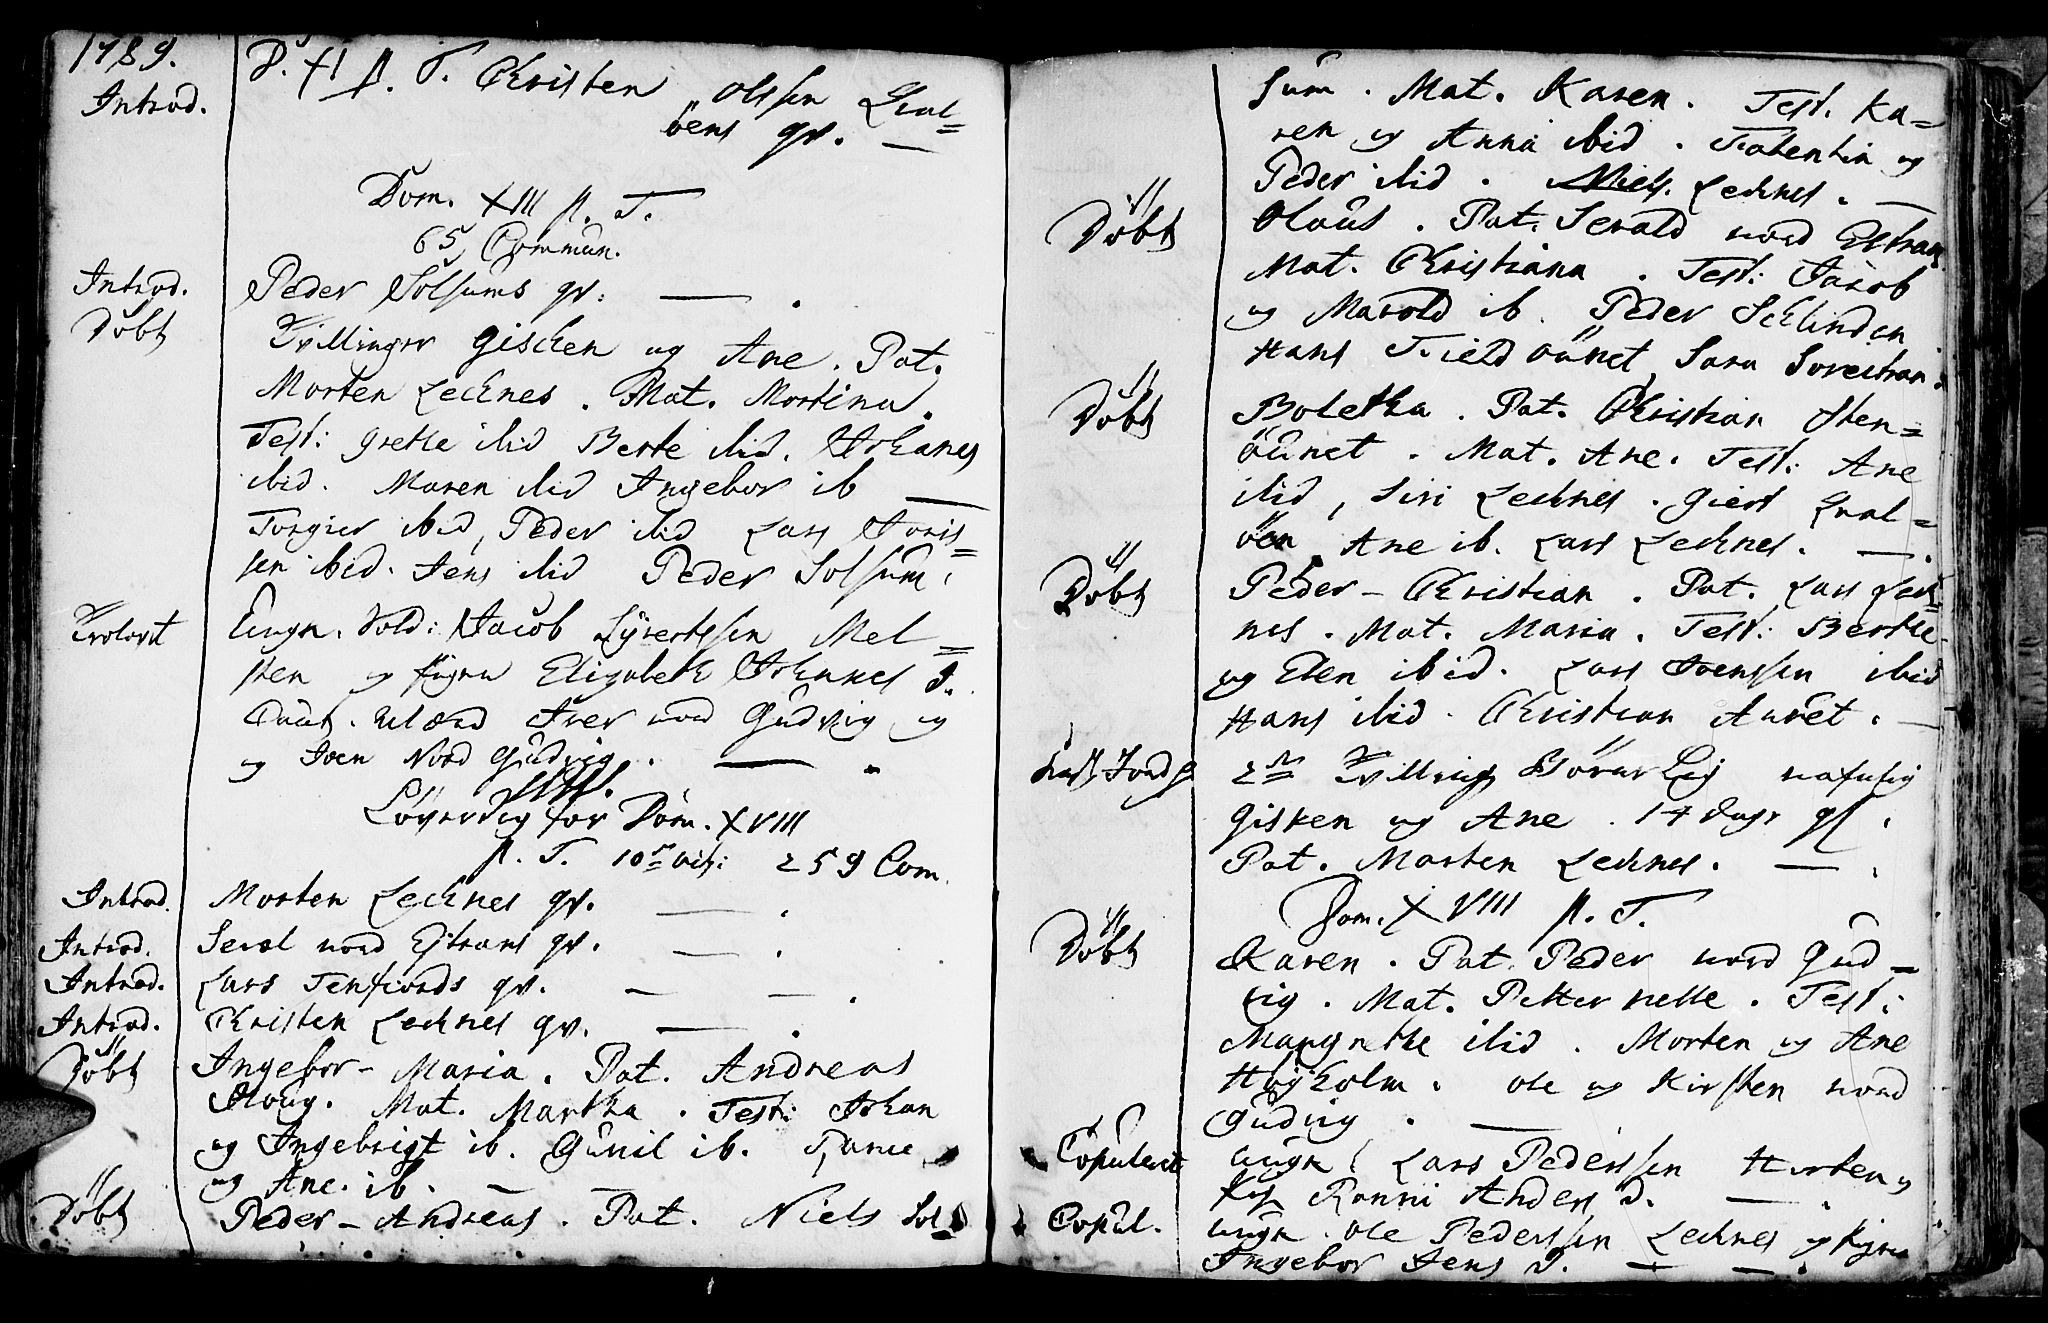 1789.
D. XI p. T. Christen Olssen Qval=
Introd. öens qv. —
Dom. XIII p. T.
65 Commun.
Introd. Peder Solsums qv: — .
Döbt Tvillinger Gisken og Ane. Pat.
Morten Lecknes. Mat. Martina.
Test: Grethe ibid Berte ibid. Johanes
ibid. Maren ibid Ingebor ib —
Torgier ibid, Peder ibid Lars Joris=
sen ibid. Jens ibid Peder Solsum.
Trolovet Ungk. Sold: Jacob Syvertssen Mel=
sten og Pigen Elizabeth Johannes D.
Caut. Iver nord Gudvig og
og Joen Nord Gudvig. —
Löverdag for Dom. XVIII
p. T. 259 Com.
Introd. Morten Lecknes qv. — .
Introd. Seval nord Ejtrans qv. — .
Introd. Lars Tenfiords qv. — — .
Introd. Christen Lecknes qv. — .
Döbt Ingebor-Maria. Pat. Andreas
Houg. Mat. Martha. Test: Johan
og Ingebrigt ib. Gunil ib.
og Ane. ib. —
Döbt Peder-Andreas. Pat. Niels Sol=
sum. Mat. Karen. Test. Ka=
ren og Anna ibid. Tolentin og
Peder ibid. Niels. Lecknes. —
Döbt Olaus. Pat. Sevald nord Eltran
Mat. Christiana. Test: Jacob
og Marold ib. Peder Schlinden
Hans Field öunet, Sara Soreitran.
Döbt Boletha. Pat. Christian Sten=
öunet. Mat. Ane. Test: Ane
ibid, Siri Lecknes. Giert Qval=
öen. Ane ib. Lars Lecknes. — .
Döbt Peder-Christian. Pat. Lars Leck=
nes. Mat. Maria. Test: Berthe
og Elen ibid. Lars Joenssen ibid
Hans ibid. Christian Aunet. —
2de Tvilling Börns Lig nafnlig
Gisken og Ane. 14 dage gl.
Pat. Morten Lecknes. — .
Dom. XVIII p. T.
Döbt Karen. Pat. Peder nord Gud=
vig. Mat. Petternelle. Test:
Margrethe ibid. Morten og Ane
Höjholm. Ole og Kirsten nord
Gudvig. —
Copuleret Ungk. Lars Pederssen Horten og
Ronni Anders D. — .
Copul. Ungk. Ole Pederssen Lecknes og Pigen
Ingebor Jens D. — — .